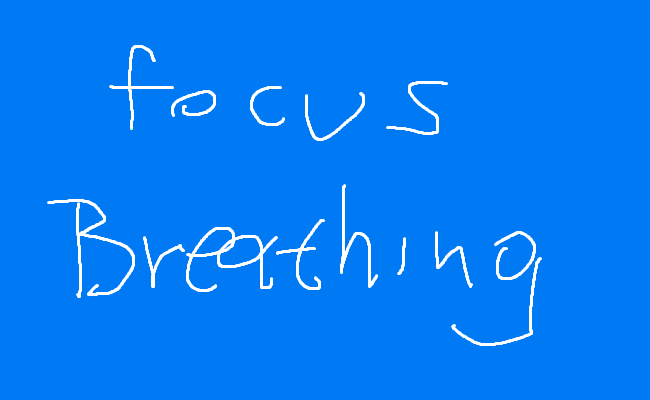 focus
Breathing